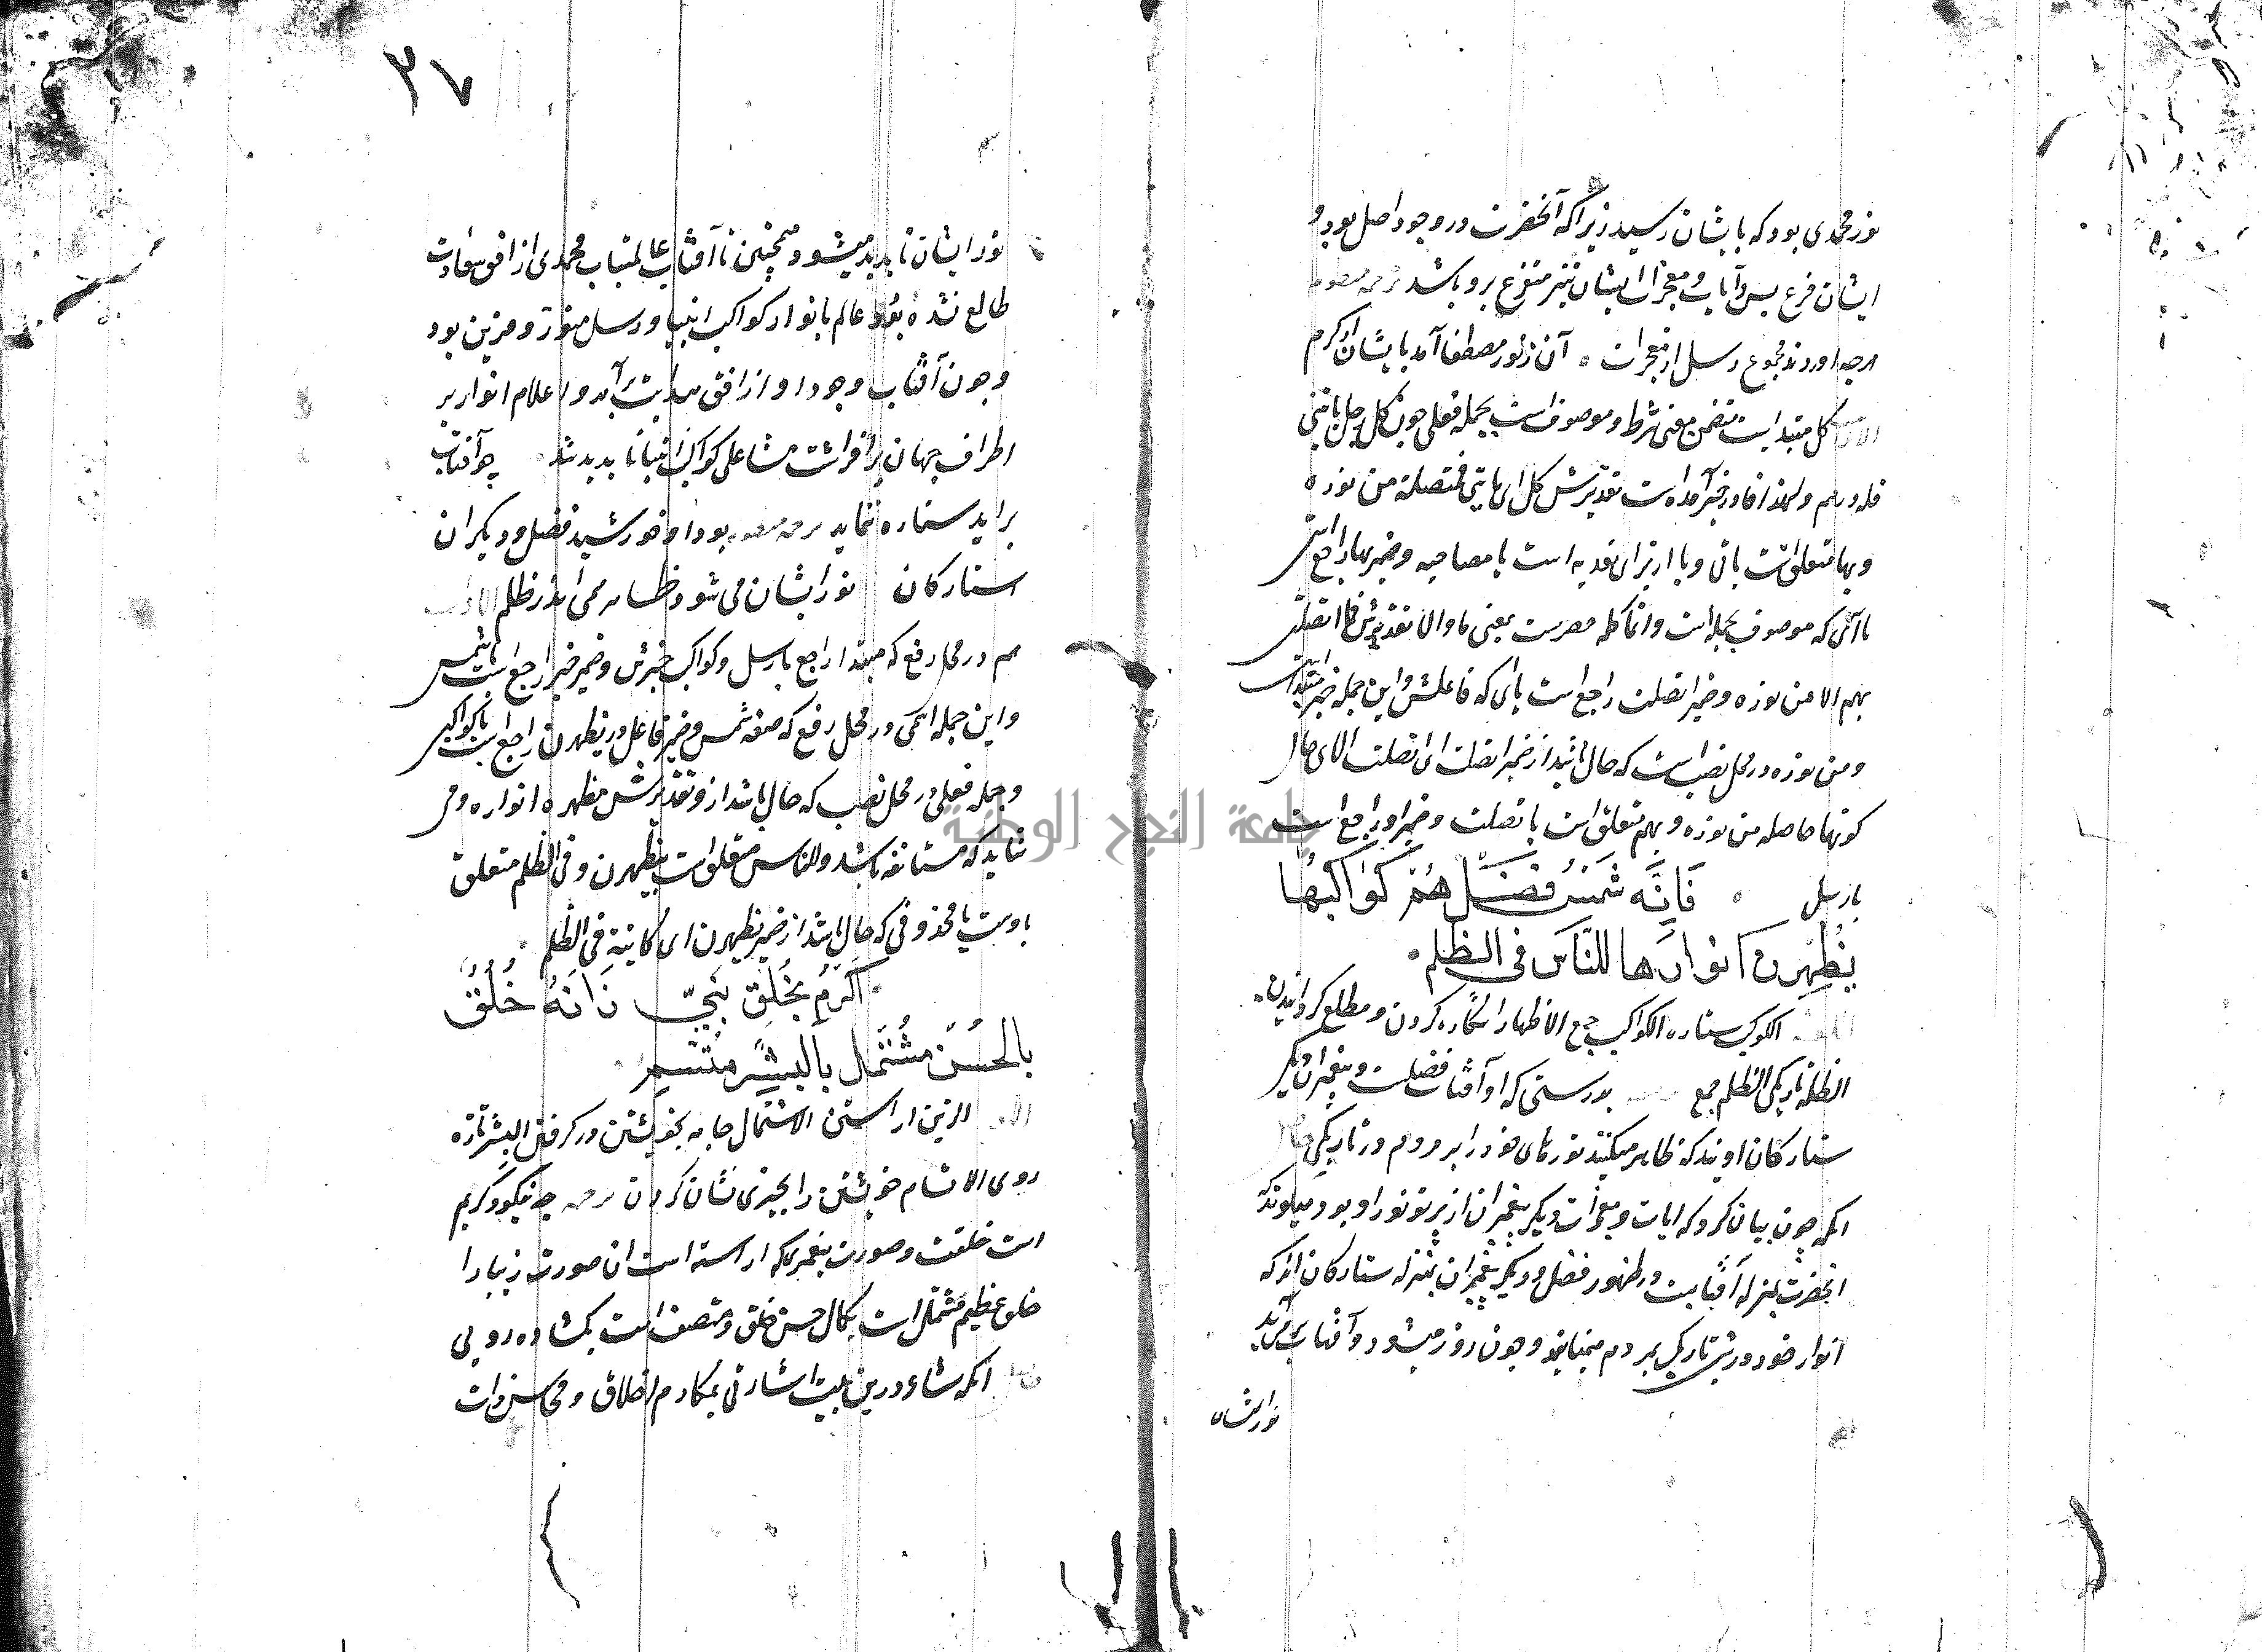 نور محمدی بود که بایشان رسید زیرا که آنحضرت در وجود اصل بود و
ایشان فرع پس آیات و معجزات ایشان نیز متفرع برو باشد
هرچه اوردند مجموع رسل از معجزات آن ز نور مصطفا آمد بایشان از کرم
کل مبتداست متضمن معنی شرط و موصوف است بجمله فعلی چون کل رجل یاتینی
فله درهم ولهذا فا در خبر آمده است تقدیرش کل ای یاتیتی فمتصلة من نوره
وبها متعلق است باتی و با از برای تعدیه است یا مصاحبه و ضمیر بها راجع است
باآی که موصوف بجمله است وانما کلمه حصرست بمعنی ما والا تقدیرش فما اتصلت
بهم الا من نوره و ضمیر اتصلت راجع است بای که فاعلش و این جمله خبر مبتداست
و من نوره در محل نصب است که حال باشد از ضمیر اتصلت ای اتصلت الای حال
کونها حاصله من نوره و بهم متعلق است باتصلت و ضمیر او راجع است
بارسل فَانَّه شَمسُ فَضلٍ هُمْ كَوَاكبُهَا
يُظهِرنَ انوارَها للنَّاسِ فی الظلم
الکوکب ستاره الکواکب جمع الاظهار اشکاره کردن و مطلع کردانیدن
الظلمة تاریکی الظلم جمع بدرستی که او آفتاب فضلست و پیغمبران دیگر
ستارکان اویند که ظاهر میکنند نورهای خود را بر مردم در تاریکی
انکه چون بیان کرد که ایات و معجزات دیکر پیغمبران از پرتو نور او بود میکوید که
انحضرت بمنزله آفتابست در ظهور فضل و دیکر پیغمبران بمنزله ستارکان اند که
انوار خود در شب تاریک بمردم مینمایند و چون روز میشود و آفتاب بر می آید
نور ایشان
۳۷
نور ایشان ناپدید میشود و همچنین تا آفتاب عالمتاب محمدی از افق سعادت
طالع نشده بود عالم بانوار کواکب انبیا و رسل منور و مزین بود
و چون آفتاب وجود او از افق هدایت برآمد و اعلام انوار بر
اطراف جهان برافراشت مشاعل کواکب انبیا ناپدید شد چو آفتاب
براید ستاره ننماید بود او خورشید فضل و دیکران
ستارکان نور ایشان می شود ظاهر همی اندر ظلم
هم در محل رفع که مبتدا راجع بارسل و کواکب خبرش و ضمیر خبر راجع است باشمس
و این جمله اسمی در محل رفع که صفه شمس و ضمیر فاعل در یظهرن راجع است باکواکب
و جمله فعلی در محل نصب که حال باشد از و تقدیرش مظهره انواره و می
شاید که مستانفه باشد وللناس متعلق است بیظهرن و فی الظلم متعلق
باوست یا محذوفی که حال باشد از ضمیر یظهرن ای کاینة فی الظلم
اَكرِمْ بخَلقِ نَبِيٍّ زَانَهُ خُلُقٌ
بِالحُسْنِ مُشْتَمِلٍ بِالبِشرِ مُتَّسِمِ
الزین اراستن الاشتمال جامه بخویشتن در کرفتن البشر تازه
روی الاتسام خویشتن را بچیزی نشان کردن چه نیکو و کریم
است خلقت و صورت پیغمبری که اراسته است ان صورت زیبا را
خلق عظیم مشتمل است بکمال حسن خلق و متصف است بکشاده رویی
انکه شاعر درین بیت اشارتی بمکارم اخلاق و محاسن ذات